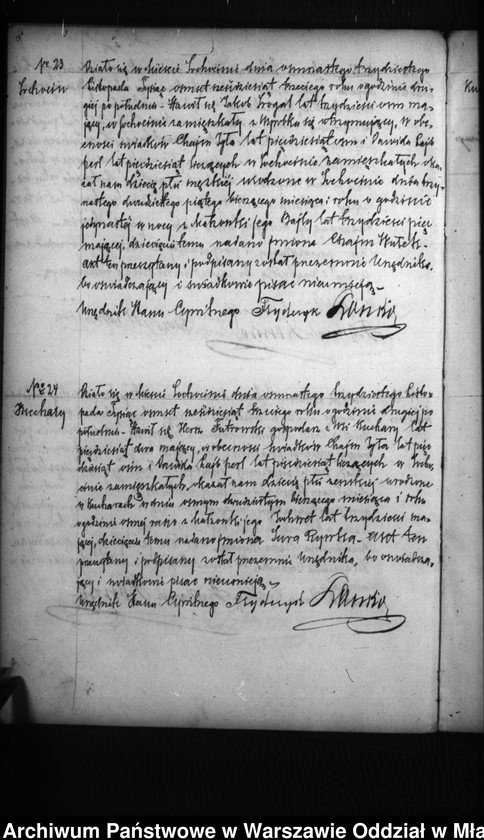 № 23
Sochocin
Działo się w Mieście Sochocinie dnia osmnastego trzydziestego
Listopada Tysiąc osmset sześćdziesiąt trzeciego roku o godzinie dru
giej po południu. Stawił się Jakob lat trzydzieści osm ma
jący, w Sochocinie zamieszkały z Wyrobku się utrzymujący, w obe
cności świadków Chaima Tyla lat pięćdziesiąt osm i Dawida Lajb
perl lat pięćdziesiąt liczących w Sochocinie zamieszkałych oka
zał nam dziecię płci męzkiej urodzone w Sochocinie dnia trzy
nastego dwudziestego piątego bieżącego miesiąca i roku o godzinie
w nocy z Małżonki jego Bajly lat trzydzieści pięć
mającej, dziecięciu temu nadano Imiona Chaim
akt ten przeczytany i podpisany został przezemnie Urzędnika
bo oświadczający i świadkowie pisać nieumieją.
Urzędnik Stanu Cywilnego Fryderyk
№ 24
Kuchary
Działo się w Mieście Sochocinie dnia osmnastego trzydziestego Listo
pada Tysiąc osmset sześćdziesiąt trzeciego roku o godzinie drugiej po
południu. Stawił się Herz gospodarz z Wsi Kuchary lat
pięćdziesiąt dwa mający, w obecności świadków Chaima Tyla lat pięć
dziesiąt osm i Dawida Lajb perl lat pięćdziesiąt liczących w Socho
cinie zamieszkałych, okazał nam dziecię płci żeńskiej urodzone
w Kucharach w dniu osmym dwudziestym bieżącego miesiąca i roku
o godzinie osmej rano z Małżonki jego lat trzydzieści ma
jącej, dziecięciu temu nadano Imiona Sura Akt ten
przeczytany i podpisany został przezemnie Urzędnika, bo oświadcza
jący i świadkowie pisać nieumieją.
Urzędnik Stanu Cywilnego Fryderyk
Archiwum Państwowe w Warszawie Oddział w Mła